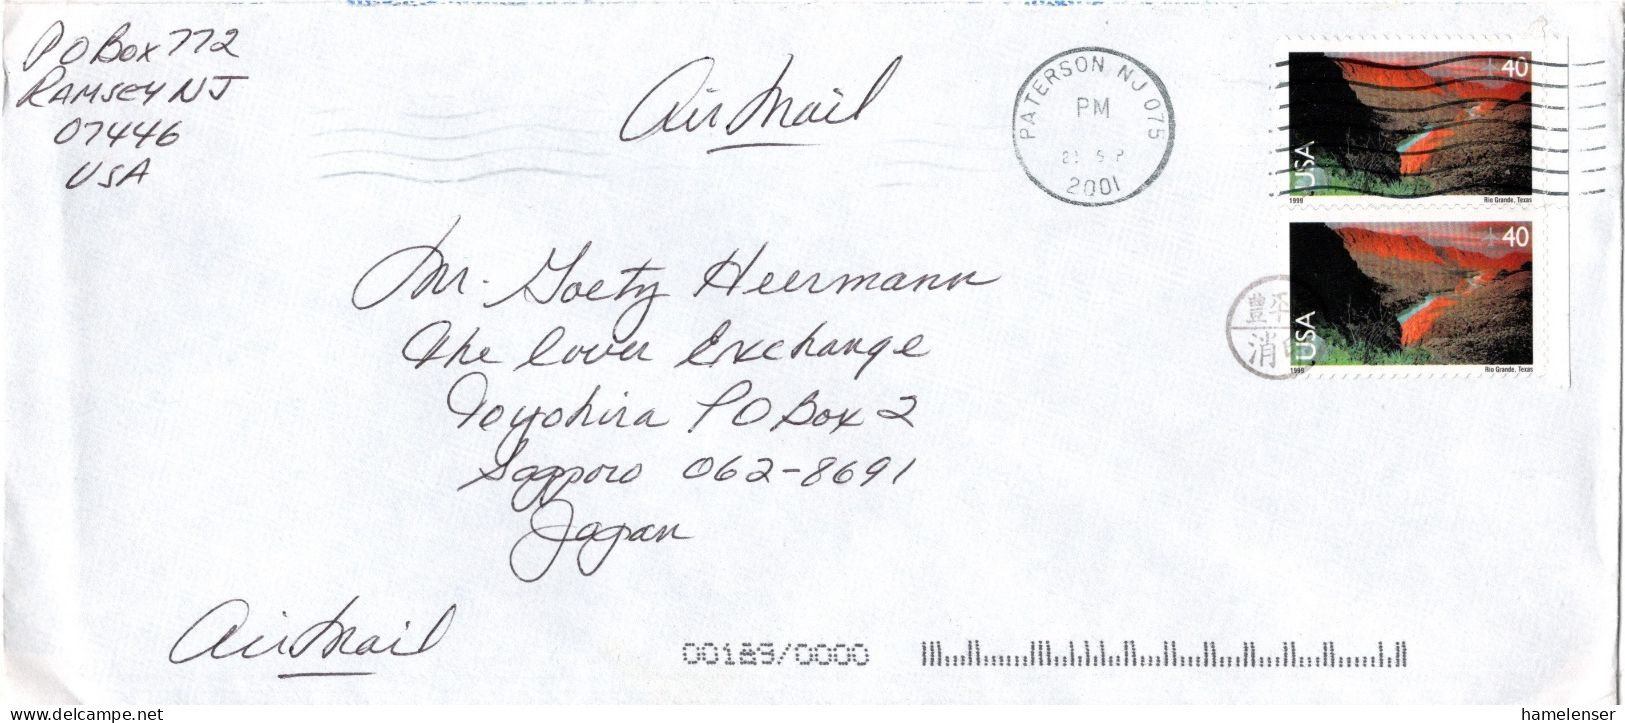 PO Box 772
RAMSEY NJ
07446
USA
Air Mail
PATERSON NJ 075
PM
2001
40
USA
1999 Rio Grande, Texas
40
USA
1999 Rio Grande, Texas
豊平
消印
Mr. Goetz Heermann
The Cover Exchange
Toyohira PO Box 2
Sapporo 062-8691
Japan
Air Mail
00189/0000
hamelenser